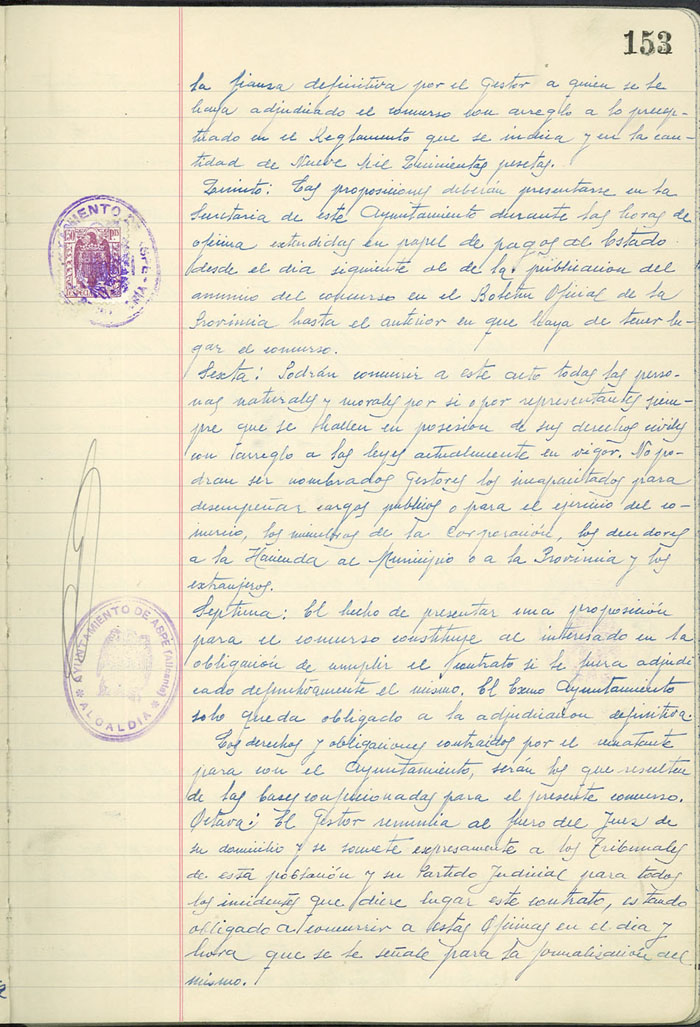 153
la fianza definitiva por el Gestor a quien se le
haya adjudicado el concurso con arreglo a lo precep-
tuado en el Reglamento que se indica y en la can-
tidad de Nueve Mil Quinientas pesetas.
Quinto: Las proposiciones deberán presentarse en la
Secretaria de este Ayuntamiento durante las horas de
oficina extendidas en papel de pagos al Estado
desde el dia siguiente al de la publicacion del
anuncio del concurso en el Boletin Oficial de la
Provincia hasta el anterior en que haya de tener lu-
gar el concurso.
Sexta: Podrán concurrir a este acto todas las perso-
nas naturales y morales por si o por representantes siem-
pre que se hallen en posesion de sus derechos civiles
con arreglo a las leyes actualmente en vigor. No po-
dran ser nombrados Gestores los incapacitados para
desempeñar cargos publicos o para el ejercicio del co-
mercio, los miembros de la Corporación, los deudores
a la Hacienda al Municipio o a la Provincia y los
extranjeros.
Septima: El hecho de presentar una proposición
para el concurso constituye al interesado en la
obligación de cumplir el contrato si le fuera adjudi
cado definitivamente el mismo. El Excmo Ayuntamiento
solo queda obligado a la adjudicacion definitiva.
Los derechos y obligaciones contraidos por el rematante
para con el Ayuntamiento, serán los que resulten
de las bases confeccionadas para el presente concurso.
Octava: El Gestor renuncia al fuero del Juez de
su domicilio y se somete expresamente a los Tribunales
de esta población y su Partido Judicial para todos
los incidentes que diere lugar este contrato, estando
obligado a concurrir a estas Oficinas en el dia y
hora que se le señale para la formalización del
mismo.
AYUNTAMIENTO DE ASPE (Alicante)
ALCALDIA